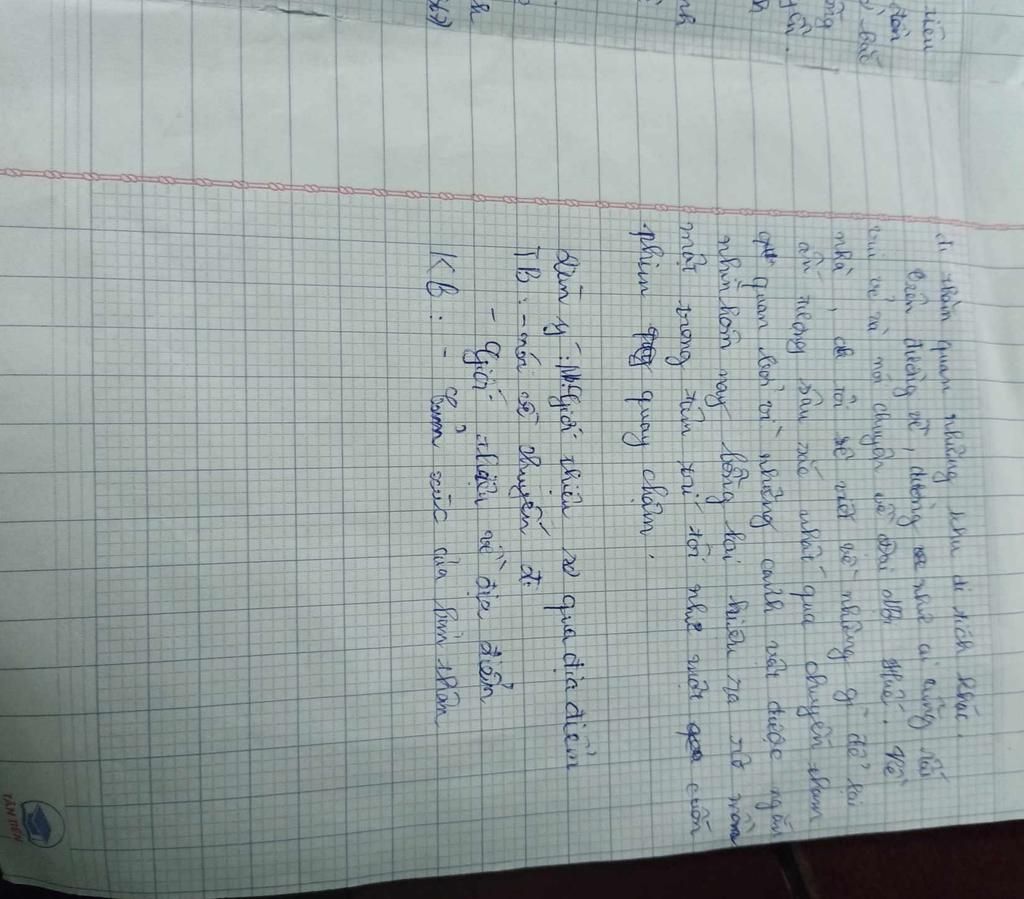 liên
đoàn
bắc
đi thăm quan những khu di tích khác.
Trên đường về, dường như ai cũng rất
vui vẻ và nói chuyện về Đại Nội Huế. Về
nhà, tôi sẽ viết về những gì để lại
ấn tượng sâu sắc nhất qua chuyến tham
quan bởi vì những cảnh vật được ngắm
nhìn hôm nay bỗng lại hiện ra rõ mồn
một trong tâm trí tôi như một cuốn
phim quay chậm.
Dàn ý: MB: Giới thiệu sơ qua địa điểm
TB: - nói về chuyến đi
- Giới thiệu về địa điểm
KB: - Cảm xúc của bản thân
TÂN TIẾN